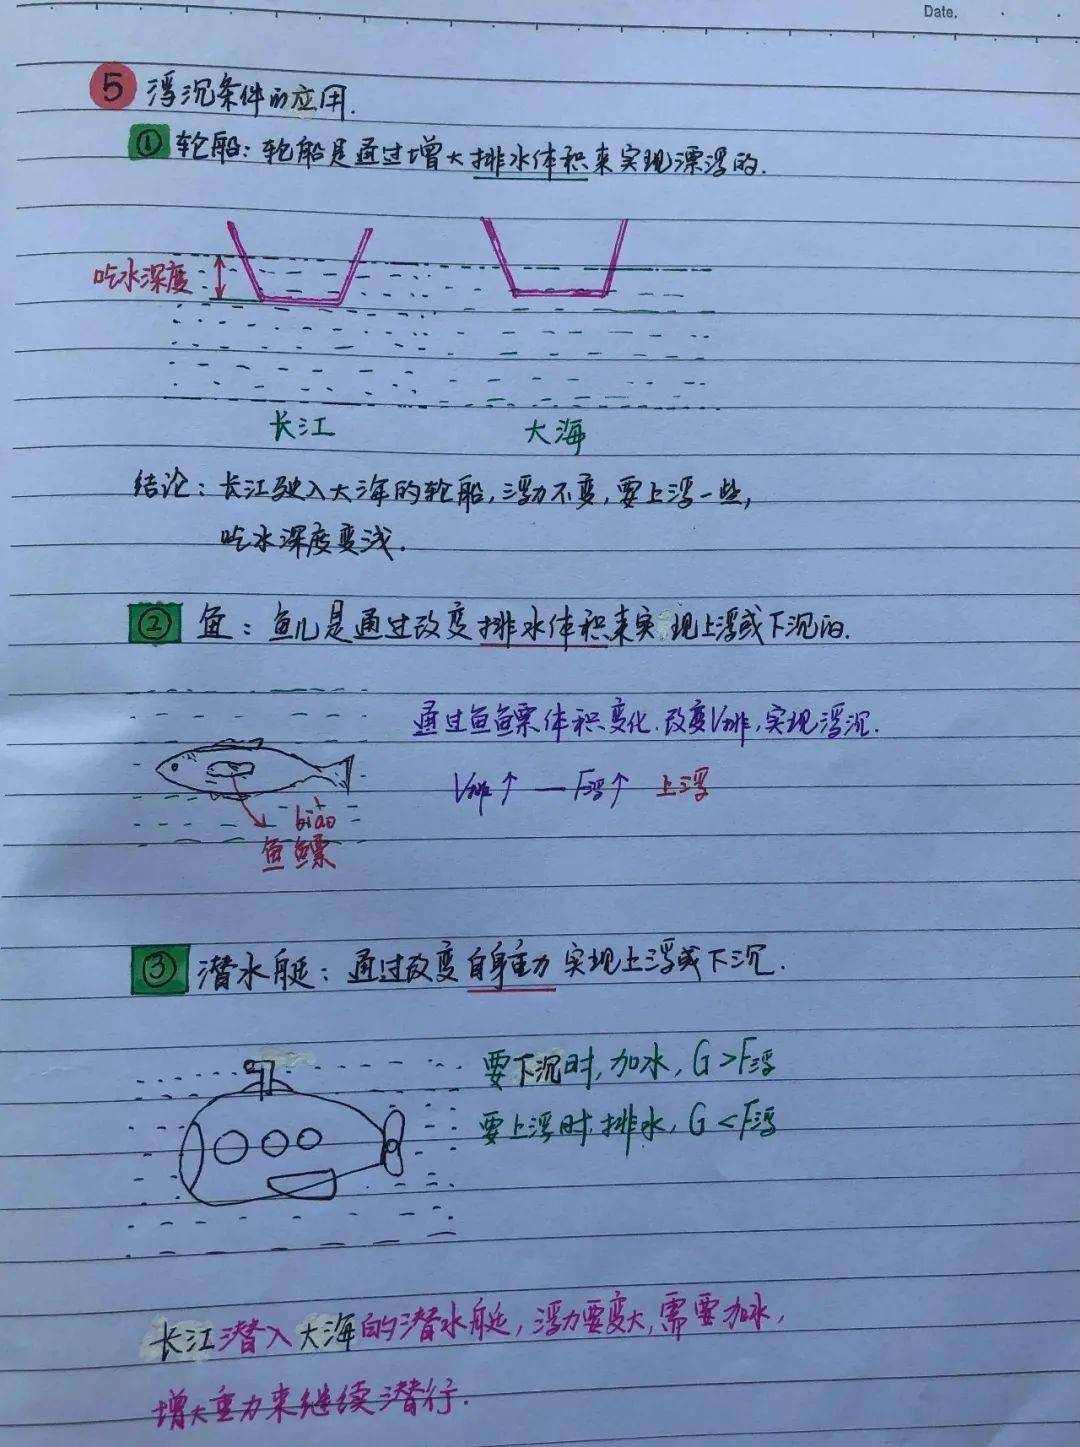 Date.
5 浮沉条件的应用.
① 轮船：轮船是通过增大排水体积来实现漂浮的.
吃水深度
长江 大海
结论：长江驶入大海的轮船，浮力不变，要上浮一些，
吃水深度变浅.
② 鱼：鱼儿是通过改变排水体积来实现上浮或下沉的.
通过鱼鳔体积变化.改变V排，实现浮沉.
V排↑ — F浮↑ 上浮
biào
鱼鳔
③ 潜水艇：通过改变自身重力 实现上浮或下沉.
要下沉时，加水，G>F浮
要上浮时，排水，G<F浮
长江潜入大海的潜水艇，浮力要变大，需要加水，
增大重力来继续潜行.